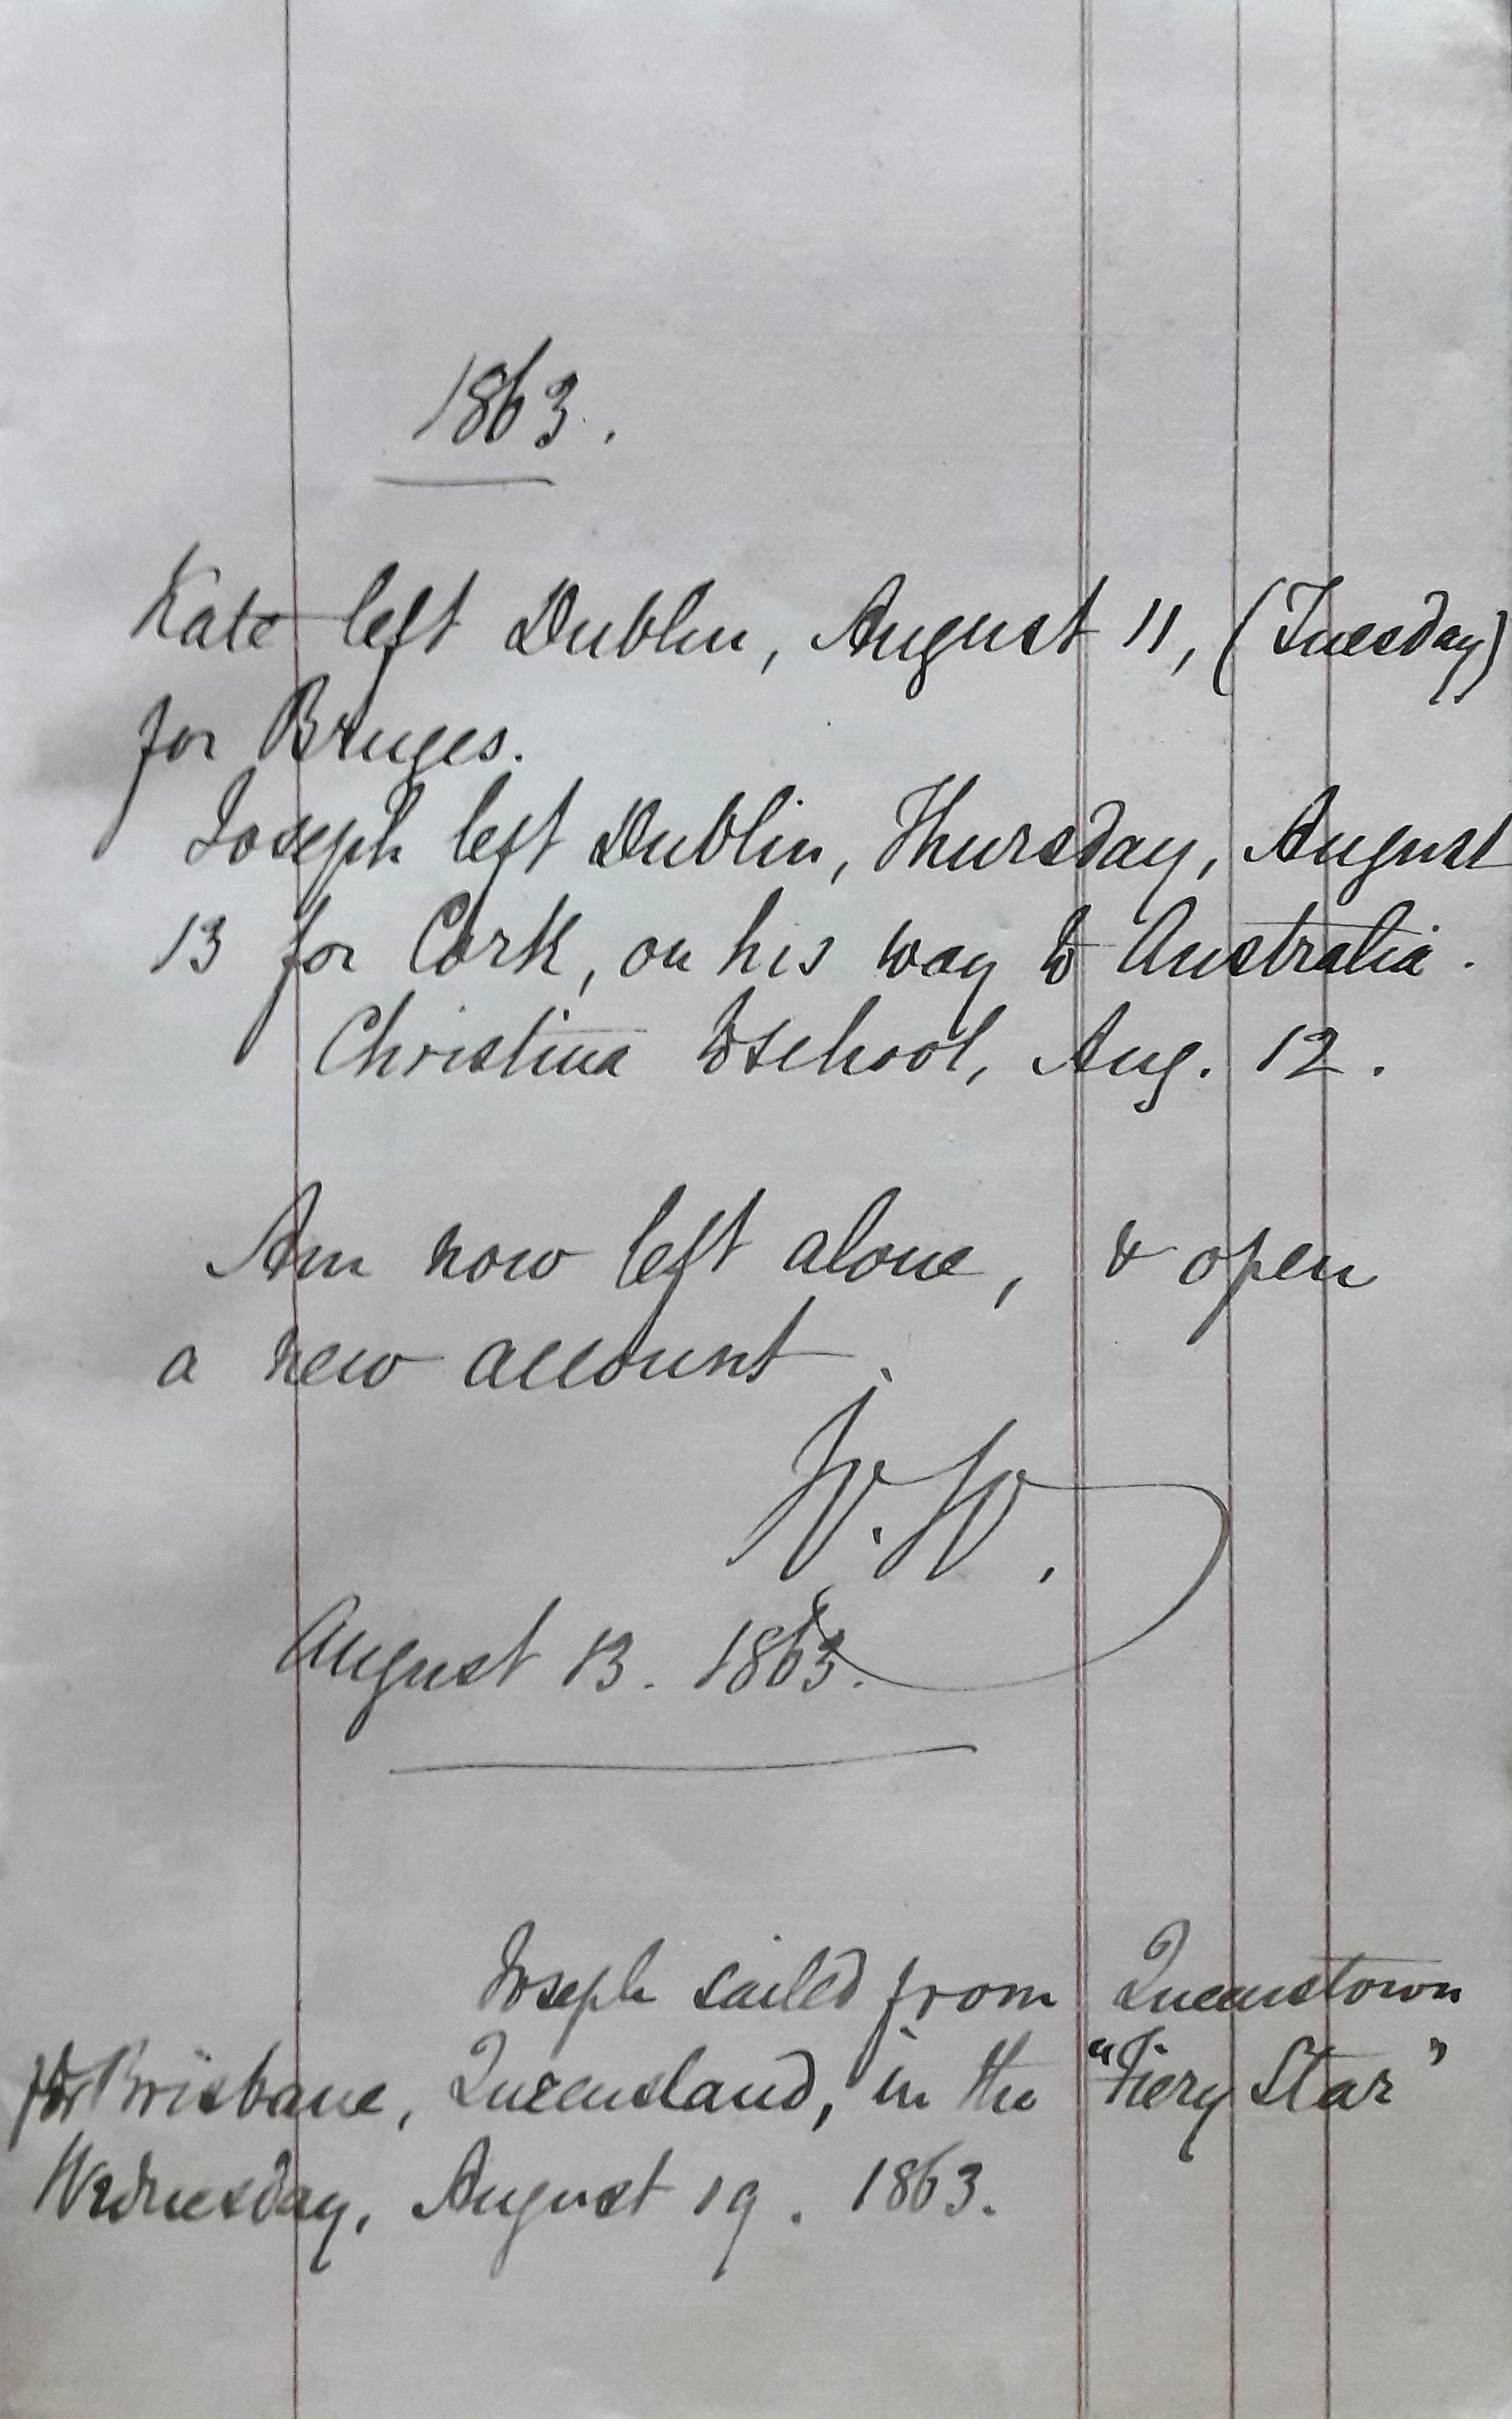 1863.
Kate left Dublin, August 11, (Tuesday)
for Bruges.
Joseph left Dublin, Thursday, August
13 for Cork, on his way to Australia.
Christina to school, Aug. 12.
Am now left alone, & open
a new account.
W. W.
August 13. 1863.
Joseph sailed from Queenstown
for Brisbane, Queensland, in the "Fiery Star"
Wednesday, August 19. 1863.